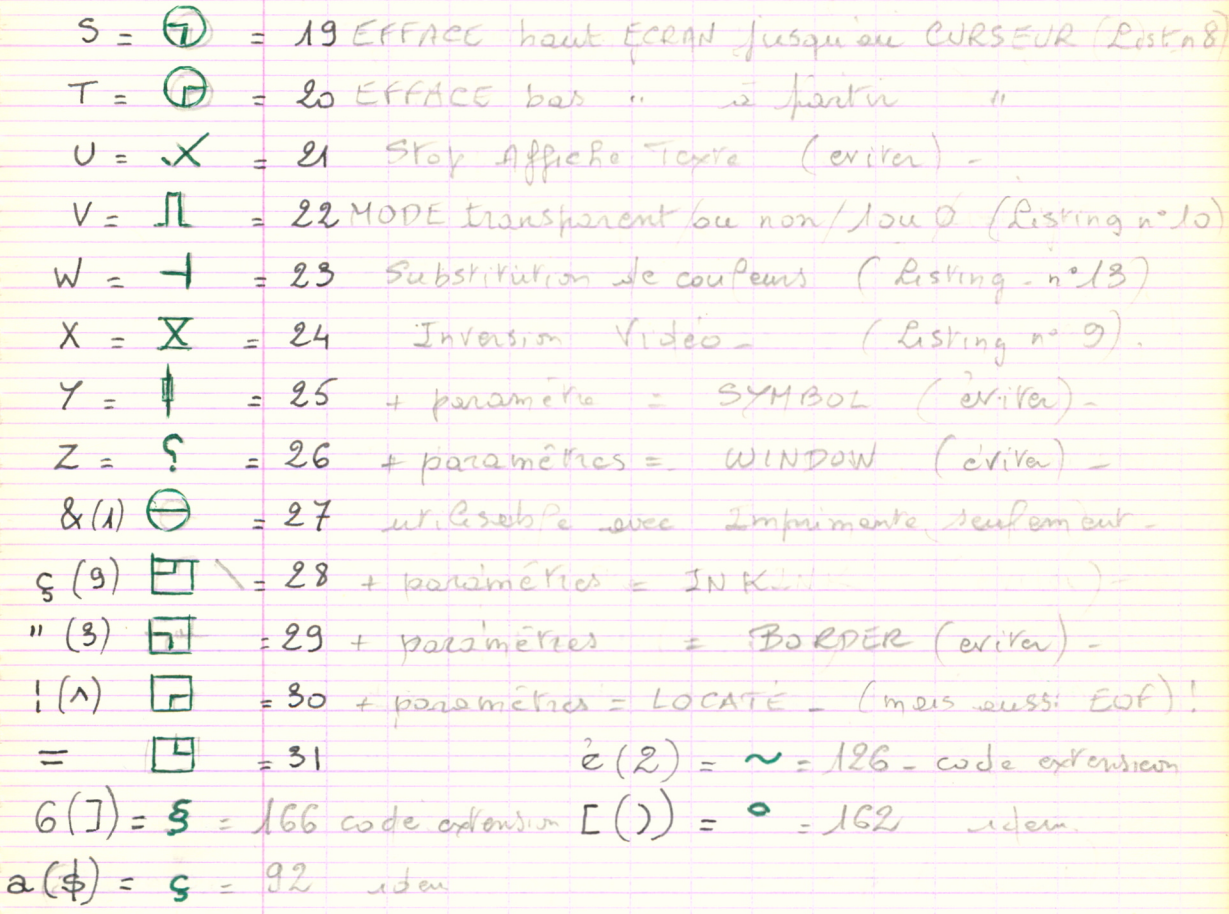 S = = 19 EFFACE haut ECRAN jusqu'au CURSEUR (List n 8)
T = = 20 EFFACE bas " à partir "
U = = 21 Stop Affiche Texte (eviter) -
V = = 22 MODE transparent ou non / 1 ou 0 (Listing n° 10)
W = = 23 Substitution de couleurs (Listing - n° 13)
X = = 24 Inversion Vidéo - (Listing n° 9).
Y = = 25 + paramètre = SYMBOL (éviter) -
Z = ? = 26 + paramètres = WINDOW (éviter) -
& (1) = 27 utilisable avec Imprimante seulement -
ç (9) \ = 28 + paramètres = INK ) -
" (3) = 29 + paramètres = BORDER (eviter) -
¦ (^) = 30 + paramètres = LOCATE - (mais aussi EOF) !
= = 31 é (2) = ~ = 126 - code extension
6 (]) = § = 166 code extension [ ()) = ° = 162 idem.
a ($) = ç = 92 idem